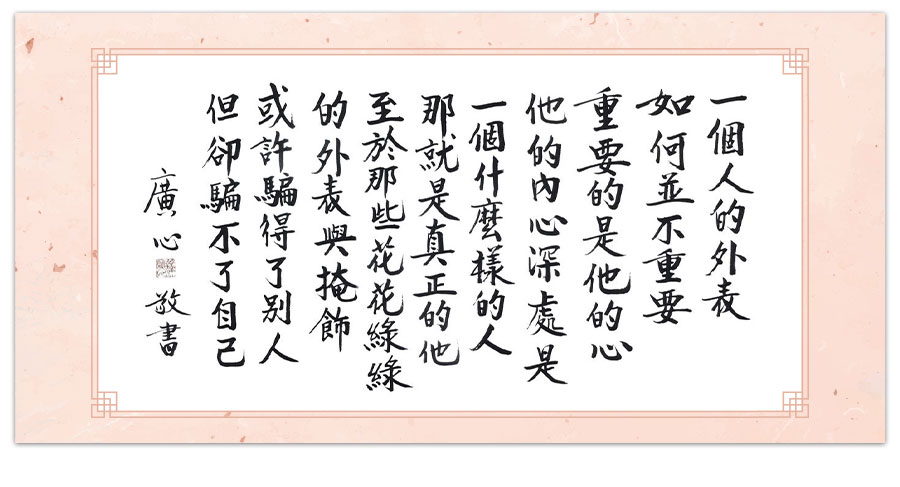 一個人的外表
如何並不重要
重要的是他的心
他的內心深處是
一個什麼樣的人
那就是真正的他
至於那些花花綠綠
的外表與掩飾
或許騙得了別人
但卻騙不了自己
廣心敬書